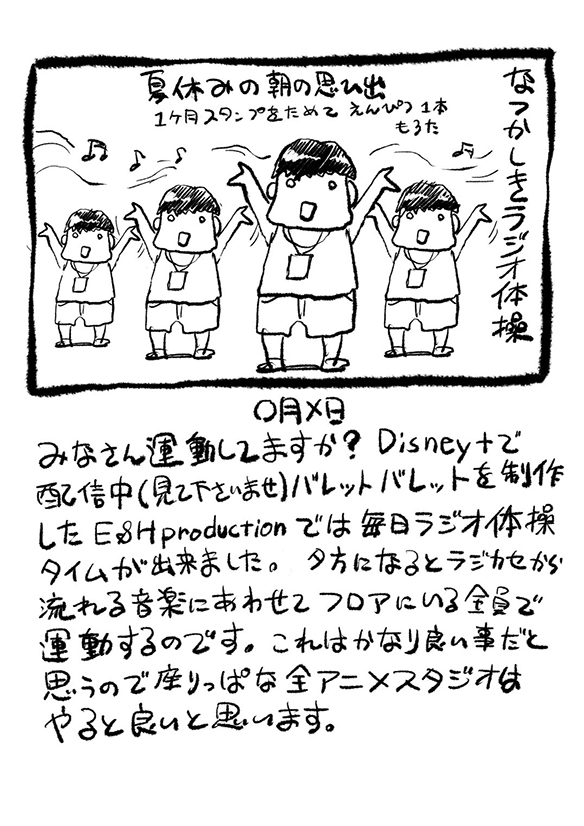 夏休みの朝の思ひ出
1ケ月スタンプをためて えんぴつ1本
もろた
なつかしきラジオ体操
〇月×日
みなさん運動してますか？ Disney+で
配信中(見て下さいませ)バレットバレットを制作
したE&H productionでは毎日ラジオ体操
タイムが出来ました。 夕方になるとラジカセから
流れる音楽にあわせてフロアにいる全員で
運動するのです。これはかなり良い事だと
思うので座りっぱな全アニメスタジオは
やると良いと思います。